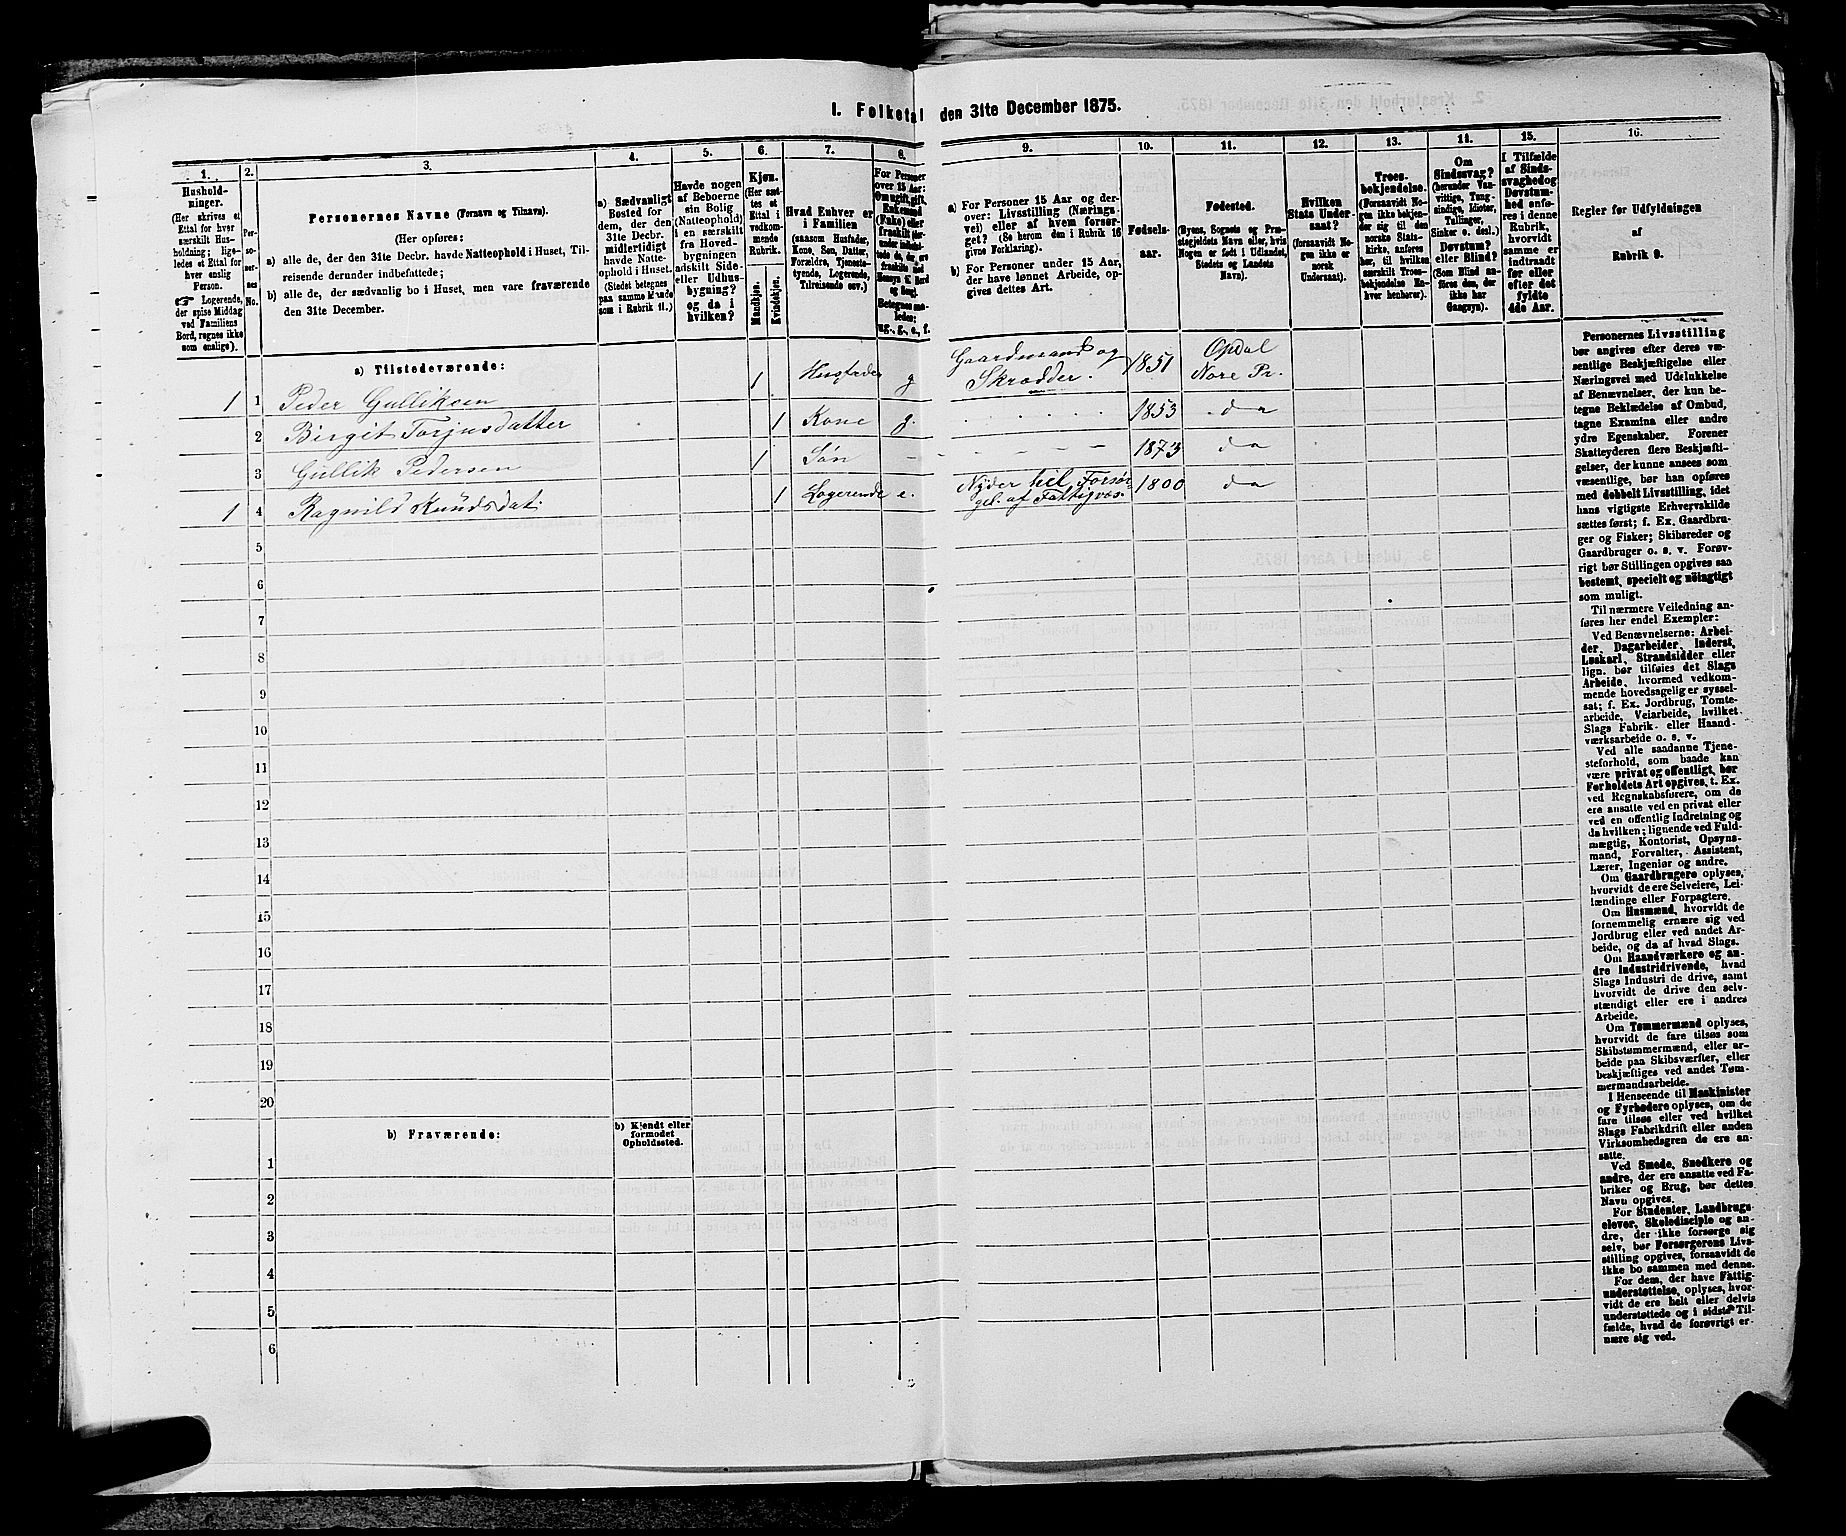 I. Folketal den 31te December 1875.
1.
Hushold-
ninger.
(Her skrives et
Ettal for hver
særskilt Hus-
holdning; lige-
ledes et Ettal for
hver enslig
Person.
Logerende,
der spise Middag
ved Familiens
Bord, regnes ikke
som enslige).
2.
Per-
so-
ner-
nes
No.
3.
Personernes Navne (Fornavn og Tilnavn).
(Her opføres:
a) alle de, der den 31te Decbr. havde Natteophold i Huset, Til-
reisende derunder indbefattede;
b) alle de, der sædvanlig bo i Huset, men vare fraværende
den 31te December.
4.
a) Sædvanligt
Bosted for
dem, der den
31te Decbr.
midlertidigt
havde Natte-
ophold i Huset.
(Stedet betegnes
paa samme Maade
som i Rubrik 11.)
5.
Havde nogen
af Beboerne
sin Bolig
(Natteophold)
i en særskilt
fra Hoved-
bygningen
adskilt Side-
eller Udhus-
bygning?
og da i
hvilken?
6.
Kjøn.
(Her sæt-
tes et
Ettal i
vedkom-
mende
Rubrik.
Mandkjøn.
Kvindekjøn.
7.
Hvad Enhver er
i Familien
(saasom Husfader,
Kone, Søn, Datter,
Forældre, Tjeneste-
tyende, Logerende,
Tilreisende osv.)
8.
For Personer
over 15 Aar:
Om ugift, gift,
Enkemand
(Enke) eller
fraskilt
Betegnes saa-
ledes:
ug., g., e., f.
9.
a) For Personer 15 Aar og der-
over: Livsstilling (Nærings-
vei) eller af hvem forsør-
get? (Se herom den i Rubrik 16
givne Forklaring).
b) For Personer under 15 Aar,
der have lønnet Arbeide, op-
gives dettes Art.
10.
Fødsels-
aar.
11.
Fødested.
(Byens, Sognets og Præ-
stegjeldets Navn eller, hvis
Nogen er født i Udlandet,
Stedets og Landets
Navn).
12.
Hvilken
Stats Under-
saat?
(forsaavidt No-
gen ikke er
norsk
Undersaat).
13.
Troes-
bekjendelse.
(Forsaavidt No-
gen ikke bekjen-
der sig til den
norske Stats-
kirke, anføres
her, til hvilken
særskilt Troes-
bekjendelse En-
hver henhører).
14.
Om
Sindssvag?
(herunder Van-
vittige, Tung-
sindige, Idioter,
Tullinger,
Sinker o. desl.)
Døvstum?
eller Blind?
(Som Blind an-
føres den, der
ikke har
Gangsyn).
15.
I Tilfælde
af Sinds-
svaghed og
Døvstum-
hed anfø-
res i denne
Rubrik,
hvorvidt
samme er
indtraadt
før eller
efter det
fyldte
4de Aar.
16.
Regler for Udfyldningen
af
Rubrik 9.
a) Tilstedeværende:
1 1 Peder Gulliksen 1 Husfader g Gaardmand og Skrædder. 1851 Opdal Nore Pr.
2 Birgit Torjusdatter 1 Kone g. 1853 do
3 Gullik Pedersen 1 Søn 1873 do
1 4 Ragnild Knudsdat. 1 Logerende e. Nyder hel Forsør-
gel. af Fattigvæs. 1800 do
5
6
7
8
9
10
11
12
13
14
15
16
17
18
19
20
b) Fraværende:
b) Kjendt eller
formodet
Opholdssted.
1
2
3
4
5
6
Personernes Livsstilling
bør angives efter deres væ-
sentlige Beskjæftigelse eller
Næringsvei med Udelukkelse
af Benævnelser, der kun be-
tegne Beklædelse af Ombud,
tagne Examina eller andre
ydre Egenskaber. Forener
Skatteyderen flere Beskjæfti-
gelser, der kunne ansees som
væsentlige, bør han opføres
med dobbelt Livsstilling, idet
hans vigtigste Erhvervskilde
sættes først; f. Ex. Gaardbru-
ger og Fisker; Skibsreder og
Gaardbruger o. s. v. Forøv-
rigt bør Stillingen opgives saa
bestemt, specielt og nöiagtigt
som muligt.
Til nærmere Veiledning an-
føres her endel Exempler:
Ved Benævnelserne: Arbei-
der, Dagarbeider, Inderst,
Løskarl, Strandsidder eller
lign. bør tilføies det Slags
Arbeide, hvormed vedkom-
mende hovedsagelig er syssel-
sat; f. Ex. Jordbrug, Tomte-
arbeide, Veiarbeide, hvilket
Slags Fabrik- eller Haand-
værksarbeide o. s. v.
Ved alle saadanne Tjene-
steforhold, som baade kan
være privat og offentligt, bør
Forholdets Art opgives, t. Ex.
ved Regnskabsførere, om de
ere ansatte ved en privat eller
ved en offentlig Indretning og
da hvilken; lignende ved Fuld-
mægtig, Kontorist, Opsyns-
mand, Forvalter, Assistent,
Lærer, Ingeniør og andre.
Om Gaardbrugere oplyses,
hvorvidt de ere Selveiere, Lei-
lændinge eller Forpagtere.
Om Husmænd, hvorvidt de
fornemmelig ernære sig ved
Jordbrug eller ved andet Ar-
beide, og da af hvad Slags.
Om Haandværkere og an-
dre Industridrivende, hvad
Slags Industri de drive, samt
hvorvidt de drive den selv-
stændigt eller ere i andres
Arbeide.
Om Tømmermænd oplyses,
hvorvidt de fare tilsøs som
Skibstømmermænd, eller ar-
beide paa Skibsværfter, eller
beskjæftiges ved andet Tøm-
mermandsarbeide.
I Henseende til Maskinister
og Fyrbødere oplyses, om de
fare tilsøs eller ved hvilket
Slags Fabrikdrift eller anden
Virksomhedsgren de ere an-
satte.
Ved Smede, Snedkere og
andre, der ere ansatte ved Fa-
briker og Brug, bør dettes
Navn opgives.
For Studenter, Landbrugs-
elever, Skoledisciple og an-
dre, der ikke forsørge sig
selv, bør Forsørgerens Livs-
stilling opgives, forsaavidt de
ikke bo sammen med denne.
For dem, der have Fattig-
understøttelse, oplyses, hvor-
vidt de ere helt eller delvis
understøttede og i sidste Til-
fælde, hvad de forøvrigt er-
nære sig ved.